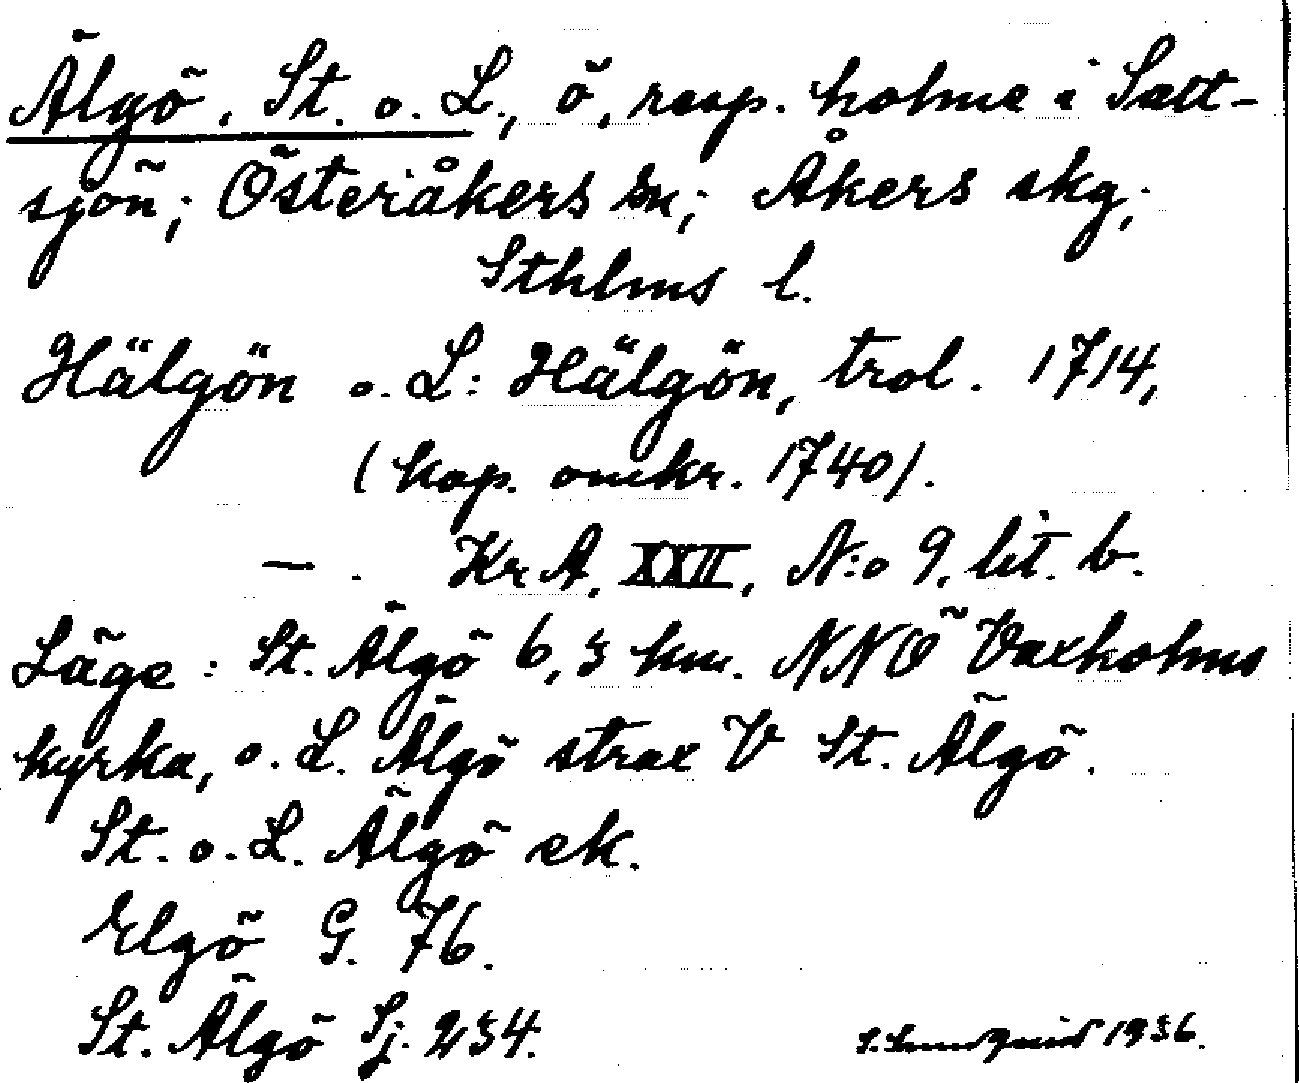 Älgö, St. o. L., ö, resp. holme i Salt-
sjön; Österåkers sn; Åkers skg;
Sthlms l.
Hälgön o. L: Hälgön, trol. 1714,
(kop. omkr. 1740).
— . Kr A, XXII, N:o 9, lit. b.
Läge: St. Älgö 6,3 km. NNÖ Vaxholms
kyrka, o. L. Älgö strax V St. Älgö.
St. o. L. Älgö ek.
Elgö G. 76.
St. Älgö Sj. 234.
1936.